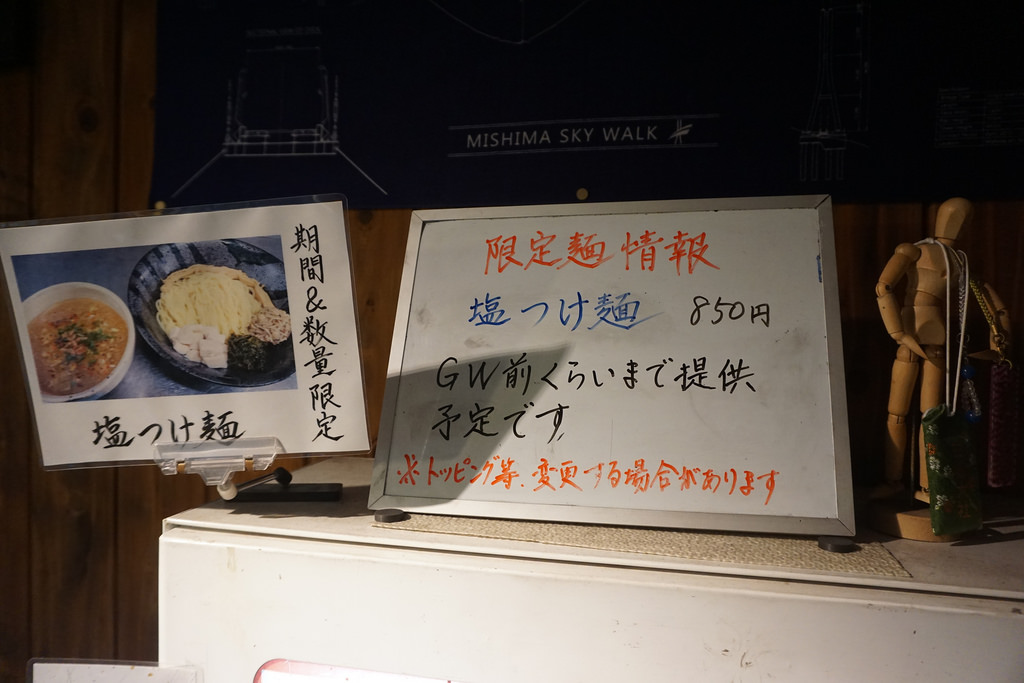 MISHIMA SKY WALK
期間&数量限定
塩つけ麺
限定麺情報
塩つけ麺 850円
GW前くらいまで提供
予定です
※トッピング等、変更する場合があります